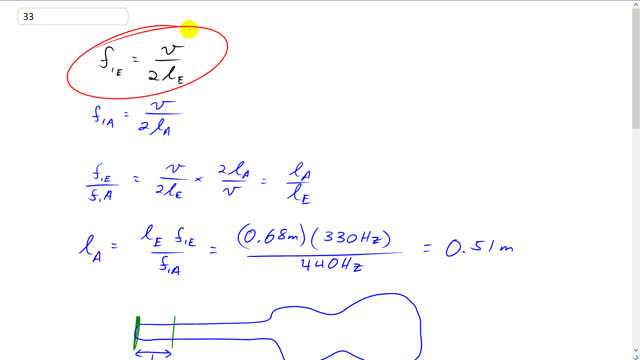 33
f₁E = v / 2l_E
f₁A = v / 2l_A
f₁E / f₁A = v / 2l_E × 2l_A / v = l_A / l_E
l_A = l_E f₁E / f₁A = (0.68m)(330Hz) / 440Hz = 0.51m